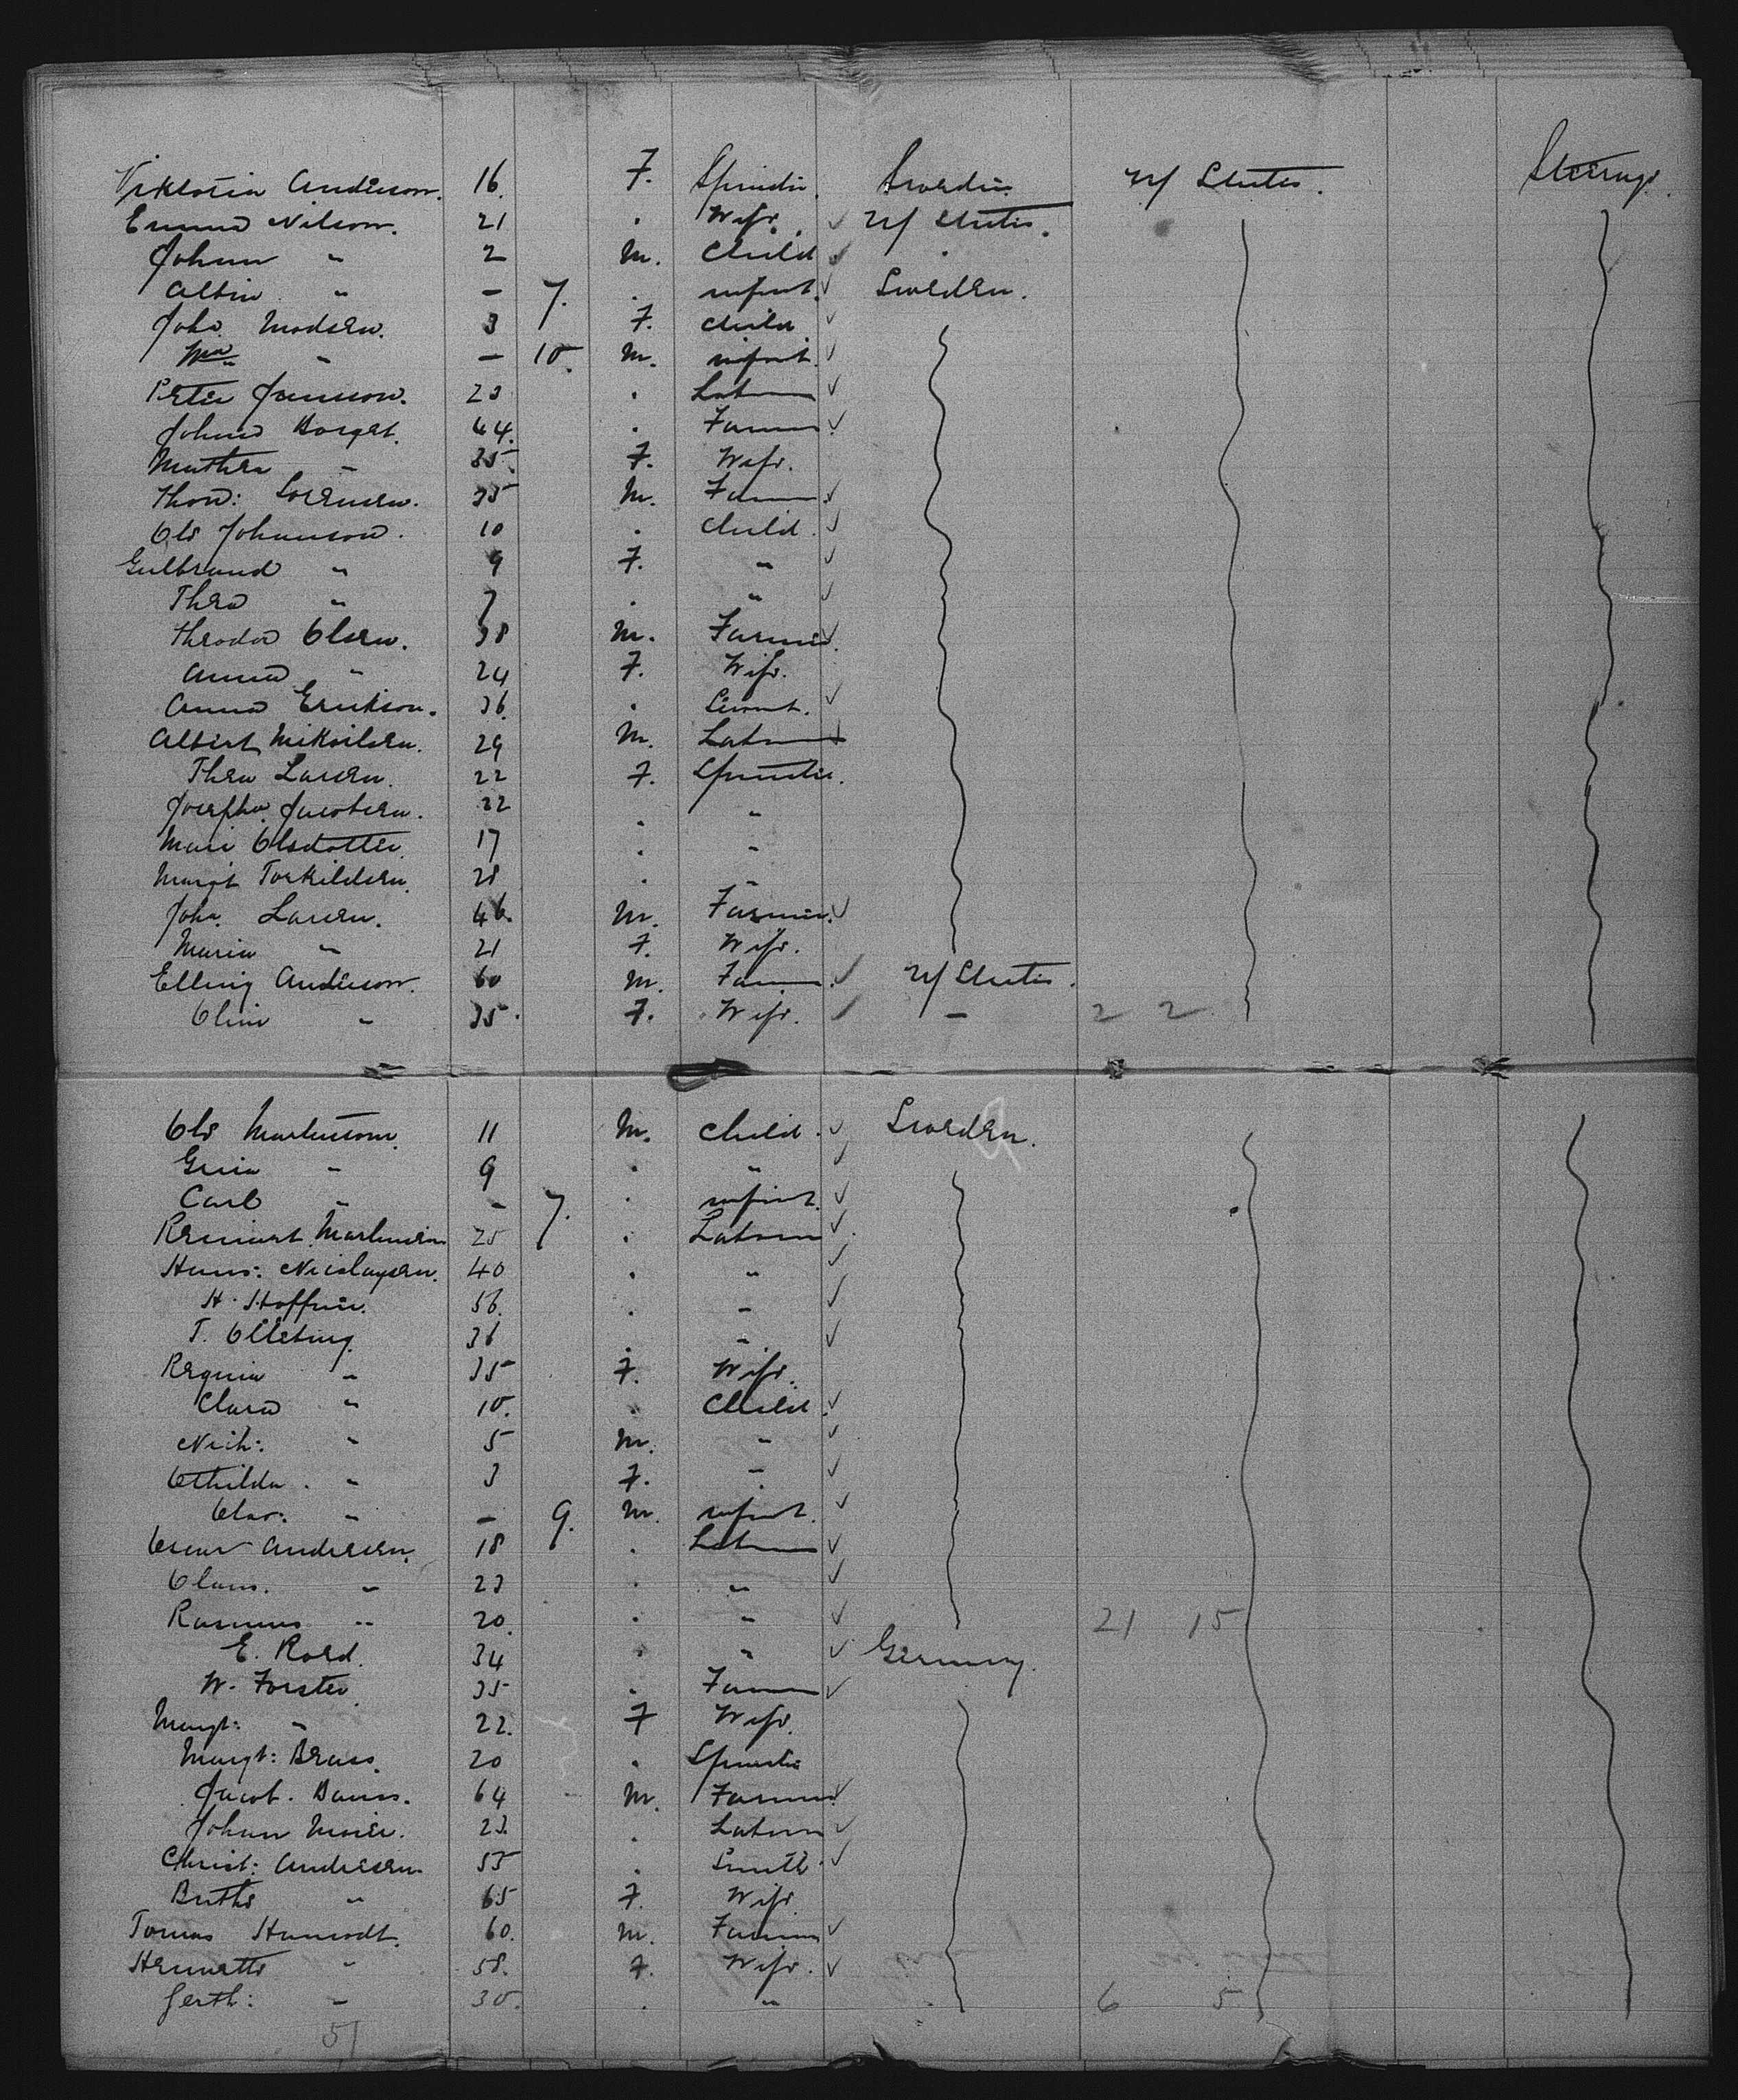 Viktoria Anderson. 16. F. Spinster. Sweden. U/ States. Steerage.
Emma Nilson. 21 . Wife. ✓ U/ States.
Johan " 2 M. Child ✓ .
Albin " - 7. . infant. ✓ Sweden.
Joha. Madsen. 3 F. Child ✓
Wm " - 10. M. infant. ✓
Peter Jansson. 23 . Labourer ✓
Johan Borget. 44. . Farmer ✓
Mathea - 35. F. Wife.
Thom: Sorensen. 35 M. Farmer ✓
Ole Johanson. 10 . Child. ✓
Gulbrand " 9 F. " ✓
Thea " 7 . " ✓
Theodor Olsen. 38 M. Farmer. ✓
Anna " 24 F. Wife.
Anna Erickson. 36. . Servant. ✓
Albert Mikkilsen. 29 M. Labourer ✓
Thea Larsen. 22 F. Spinster.
Josepha. Jacobsen. 22 . "
Mari Olsdotter. 17 . "
Margt Torkildsen. 28 . "
Joha. Larsen. 46. M. Farmer. ✓
Maria " 21 F. Wife.
Elling Anderson. 60 M. Farmer. ✓ U/ States.
Oline " 35. F. Wife. ✓ - 2 2
Ole Martinsson. 11 M. Child. ✓ Sweden.
" 9 . " ✓
Carl " - 7. . infant. ✓
Martinsen 25 . Labourer ✓
Hans: Nicolaysen. 40 . " ✓
H. Hoffner. 56. . " ✓
T. 36 . " ✓
Regina " 35 F. Wife.
Clara " 10. . Child. ✓
Nich: " 5 M. " ✓
Othilda. " 3 F. " ✓
Olav: " - 9. M. infant. ✓
Oscar Andersen. 18 . Labourer ✓
Claus. " 23 . " ✓
Rasmus " 20. . " ✓ 21 15
E. Roed. 34 . " ✓ Germany.
W. Forster 35 . Farmer ✓
Margt: " 22. F Wife.
Margt: Brass. 20 . Spinster
Jacob. Bauss. 64 M. Farmer. ✓
Johan Meier. 23. . Labourer ✓
Christ: Andersen. 55 . Smith. ✓
Berthe " 65 F. Wife.
Tomas 60. M. Farmer ✓
Henriette " 58. F. Wife. ✓
Gerth: " 30. . " 6 5
51